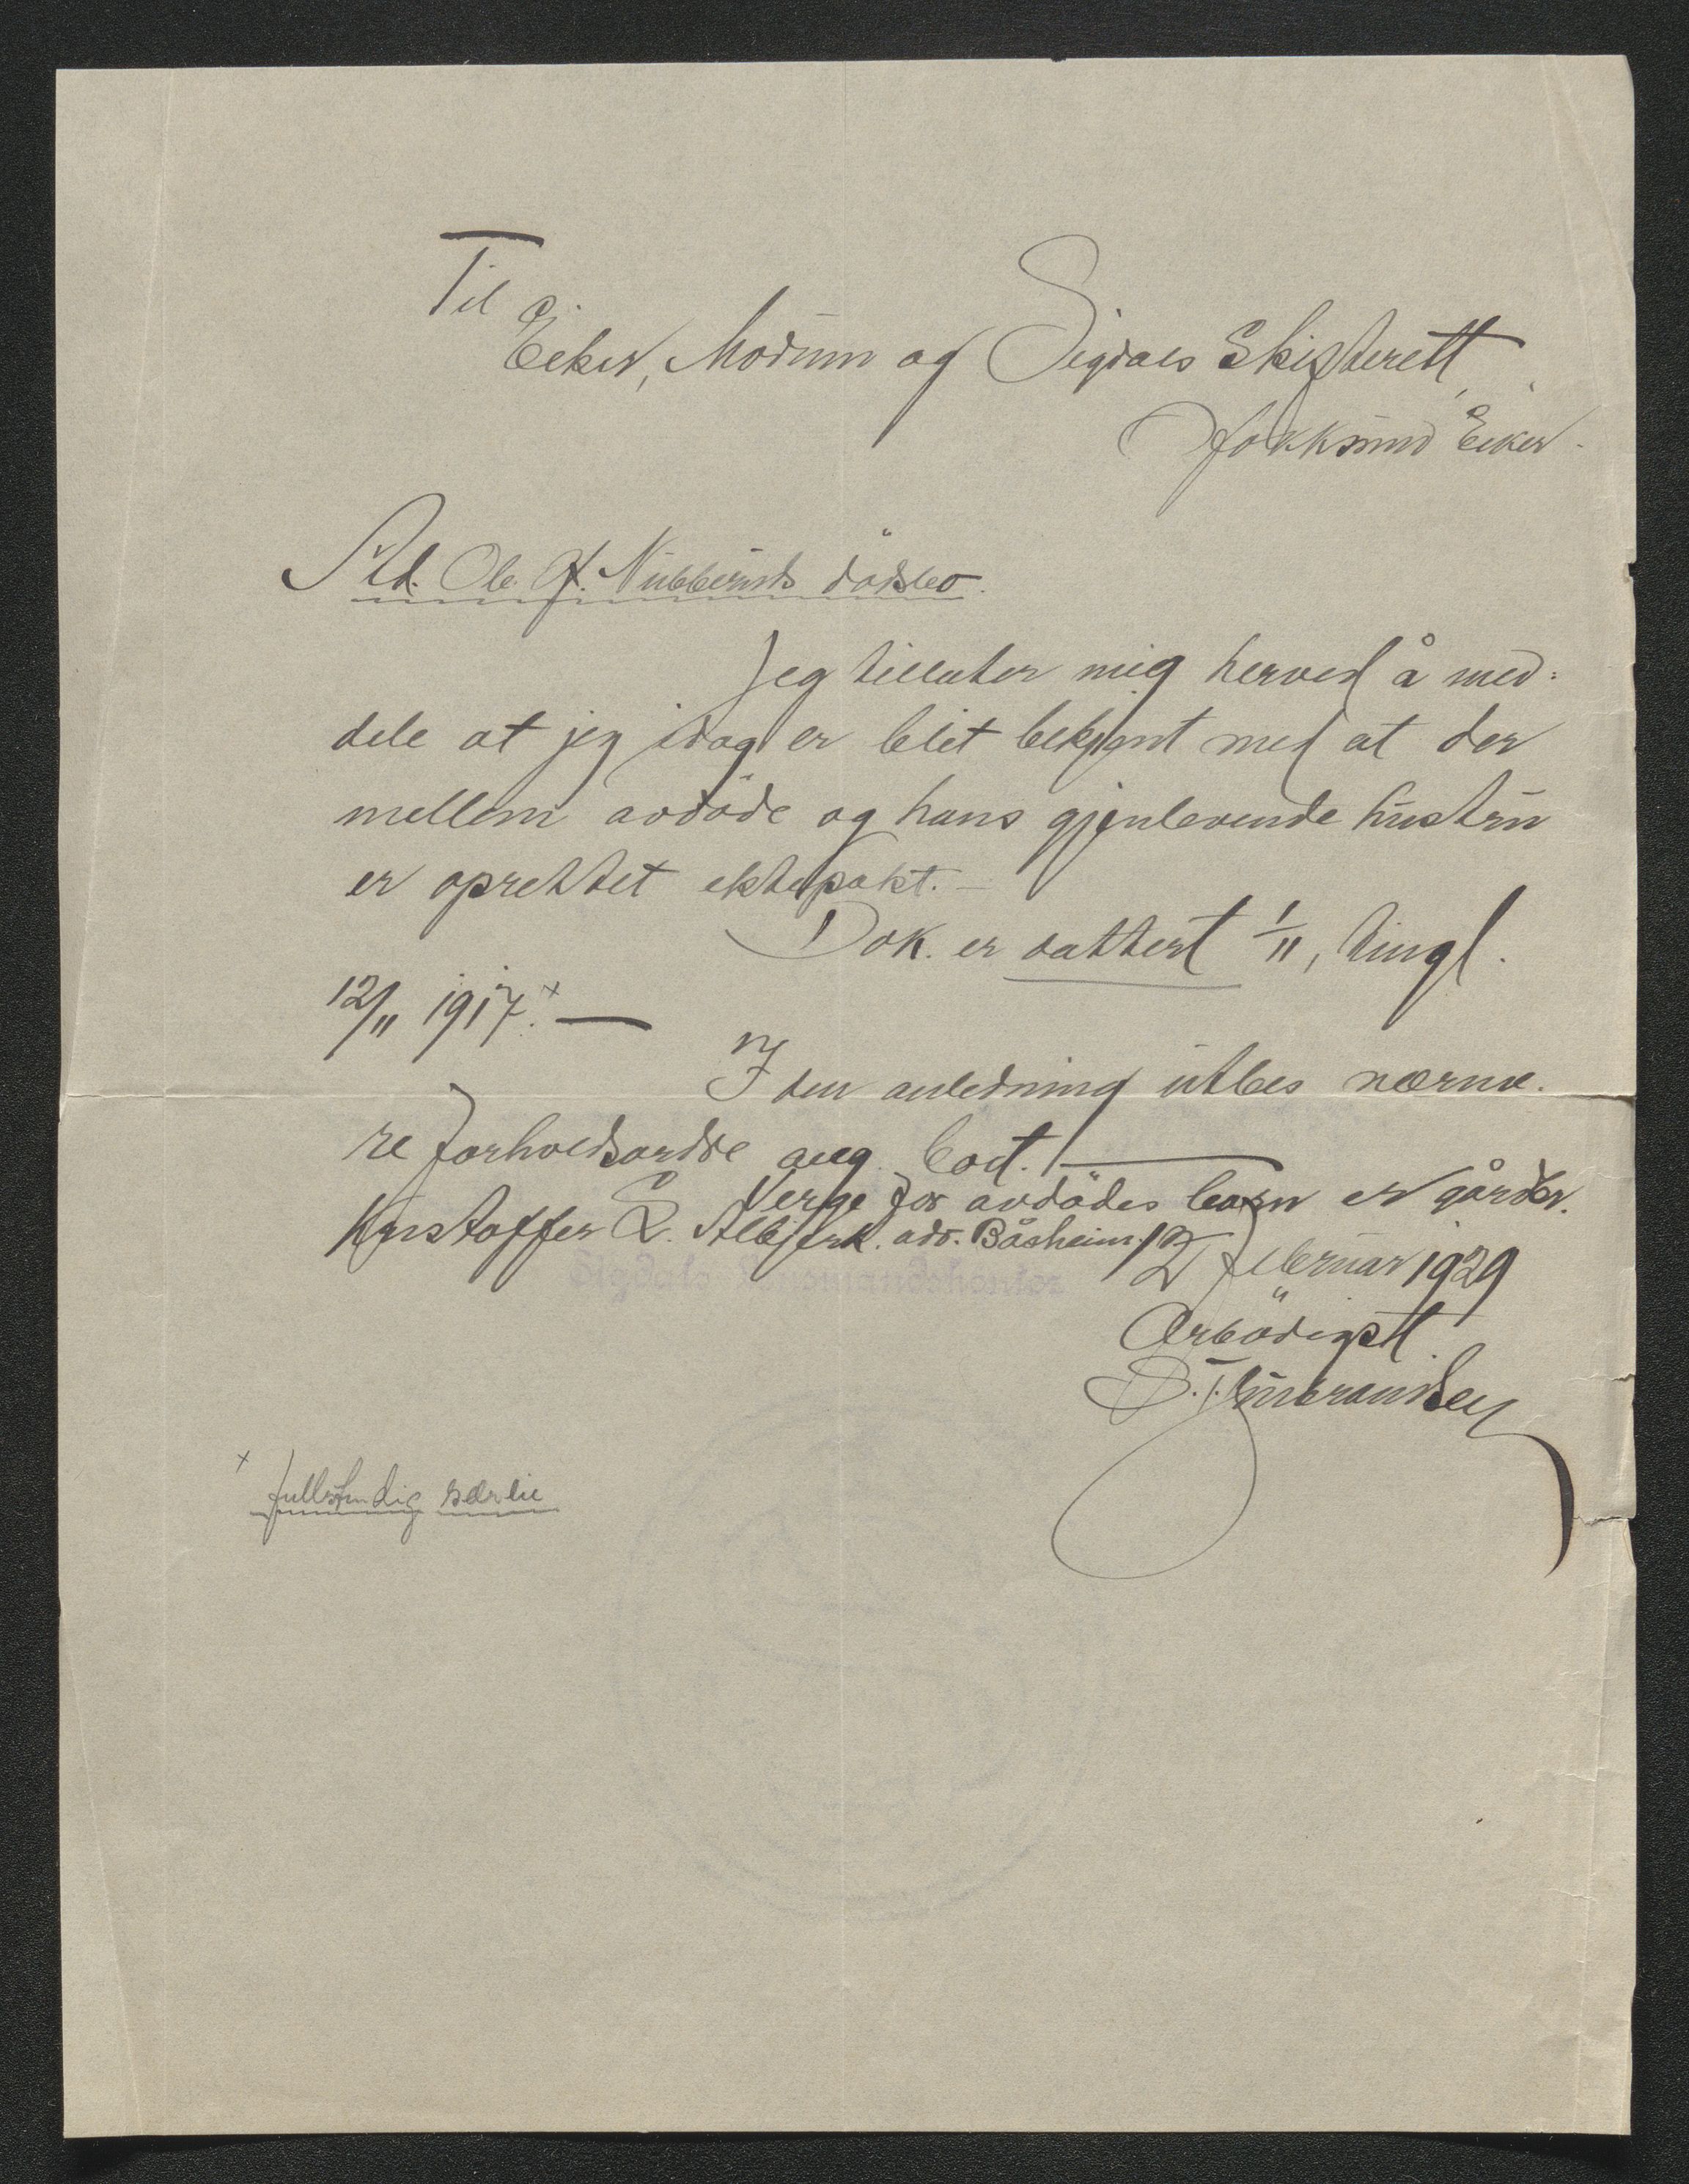 Til
Eiker, Modum og Sigdals Skifterett,
Hokksund Eiker.
Ad. Ole H. Nubberuds dødsbo.
Jeg tillater mig herved å med=
dele at jeg idag er blit bekjent med at der
mellem avdøde og hans gjenlevende hustru
er oprettet ektepakt. —
Dok. er dattert 1/11, tingl.
12/11 1917. x —
I den anledning utbes nærme-
re forholdsordre ang. boet. —
Verge for avdødes barn er gårdbr.
Kristoffer L. Albjerk. adr. Båsheim.
12 februar 1929
Ærbødigst
x fullstendig særeie